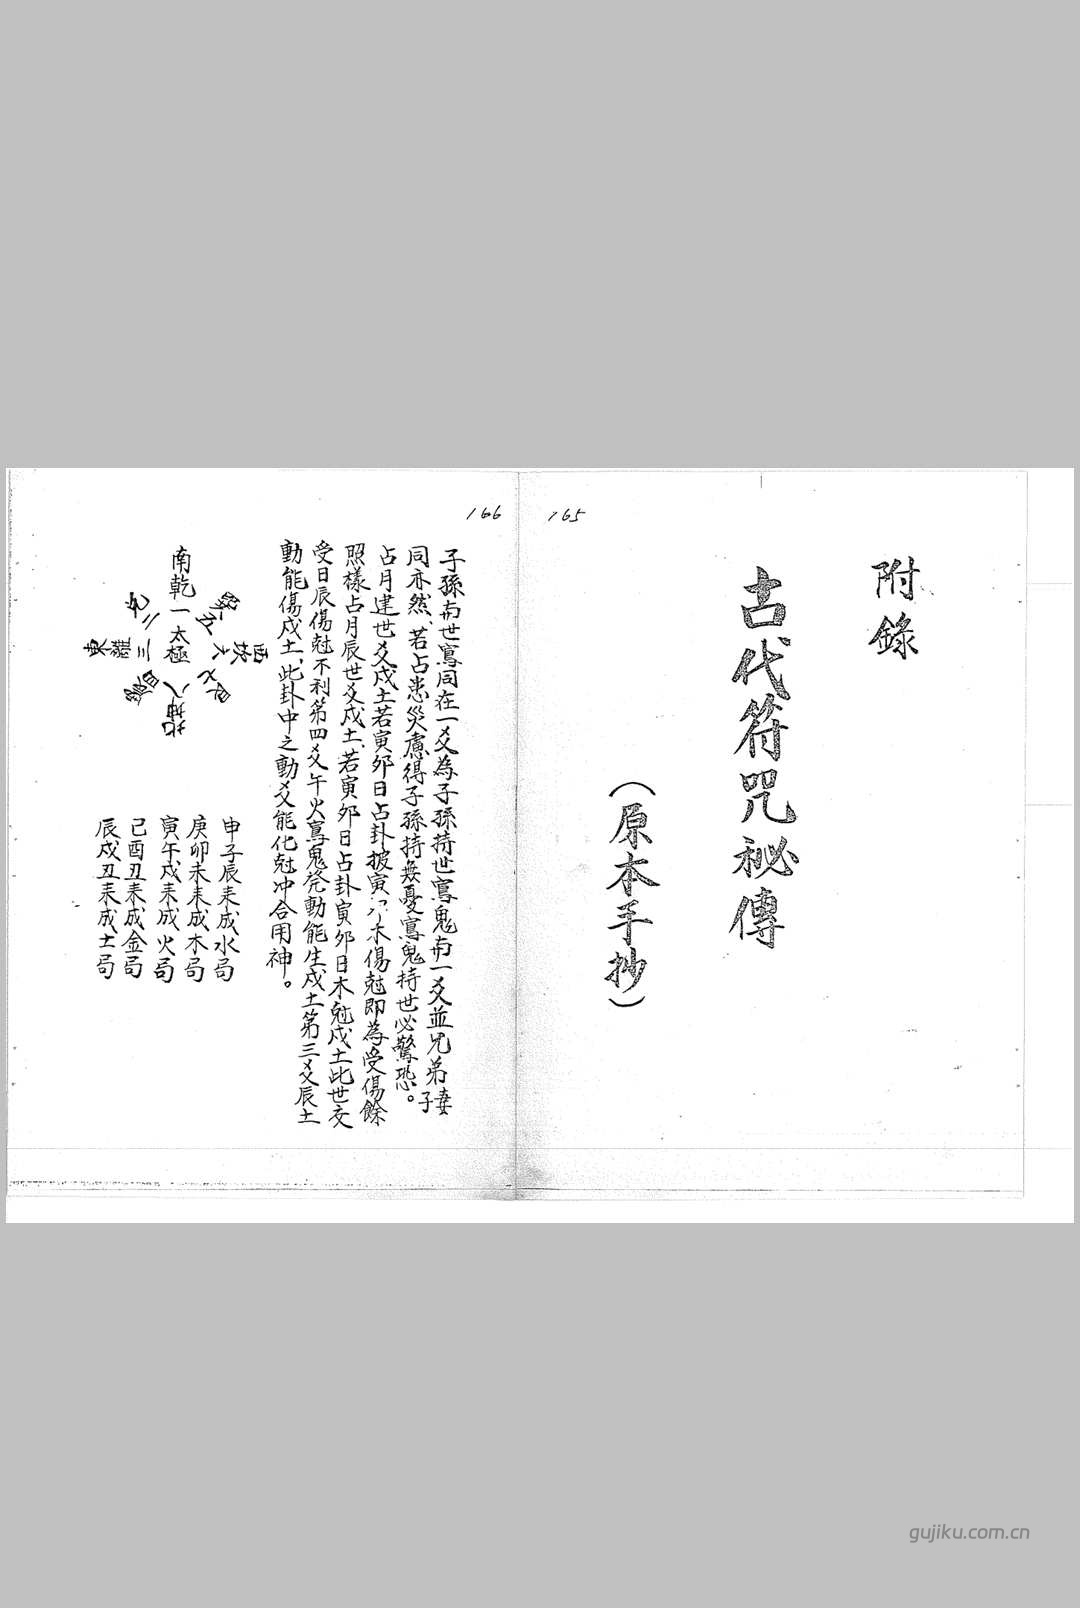 165
附錄
古代符咒秘傳
（原本手抄）
166
子孫与世寫同在一爻為子孫持世寫鬼与一爻並兄弟妻子
同亦然、若占患災慮得子孫持無憂寫鬼持世必驚恐。
占月建世爻戌土若寅卯日占卦披寅 木傷尅即為受傷餘
照樣占月辰世爻戌土、若寅卯日占卦寅卯日木尅戌土此世爻
受日辰傷尅不利第四爻午火寫鬼發動能生戌土第三爻辰土
動能傷戌土、此卦中之動爻能化尅冲合用神。
南乾一
兌二
東離三
太極
震四
巽五
西坎六
艮七
北坤八
申子辰未成水局
庚卯未未成木局
寅午戌未成火局
己酉丑未成金局
辰戌丑未成土局
gujiku.com.cn